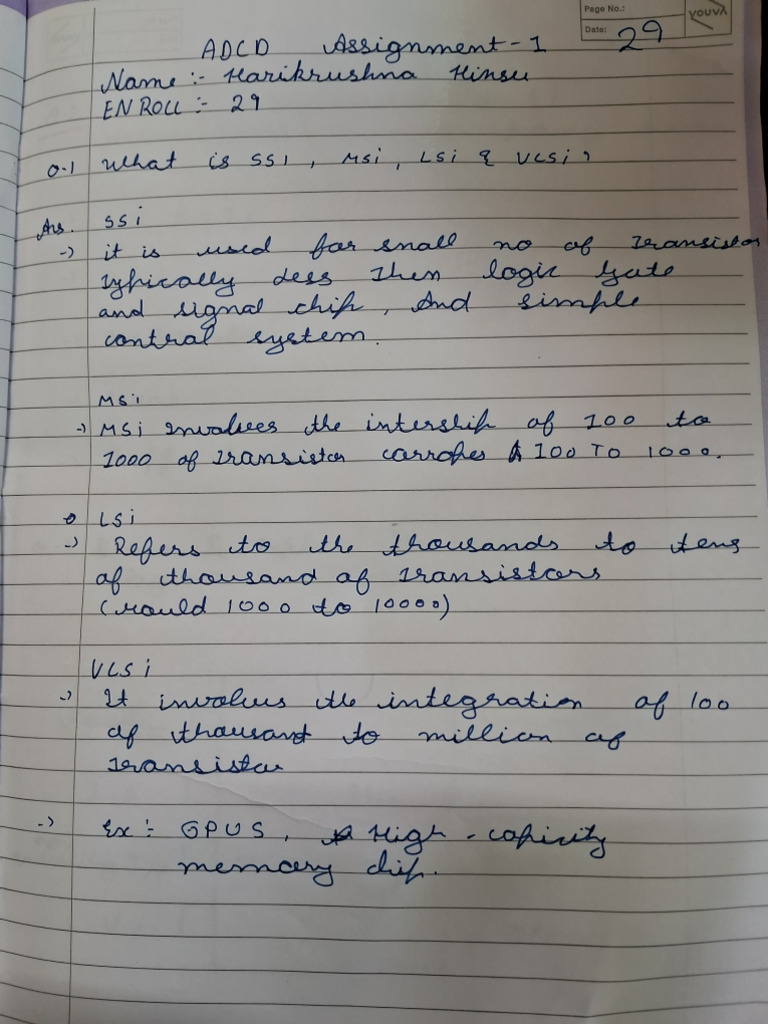 Page No.:
Date: 29
YOUVA
ADCD Assignment - 1
Name :- Harikrushna Hinsu
ENROLL :- 29
Q.1 What is SSI, MSi, LSi & VLSi?
Ans. SSi
-> it is used for small no of transistor
typically less then logic gate
and signal chip, And simple
control system.
MSi
-> MSi involves the of 100 to
1000 of transistor 100 TO 1000.
LSi
-> Refers to the thousands to tens
of thousand of transistors
(would 1000 to 10000)
VLSi
-> It involves the integration of 100
of thousand to million of
transistor
-> Ex:- GPUS, High - capicity
memory chip.